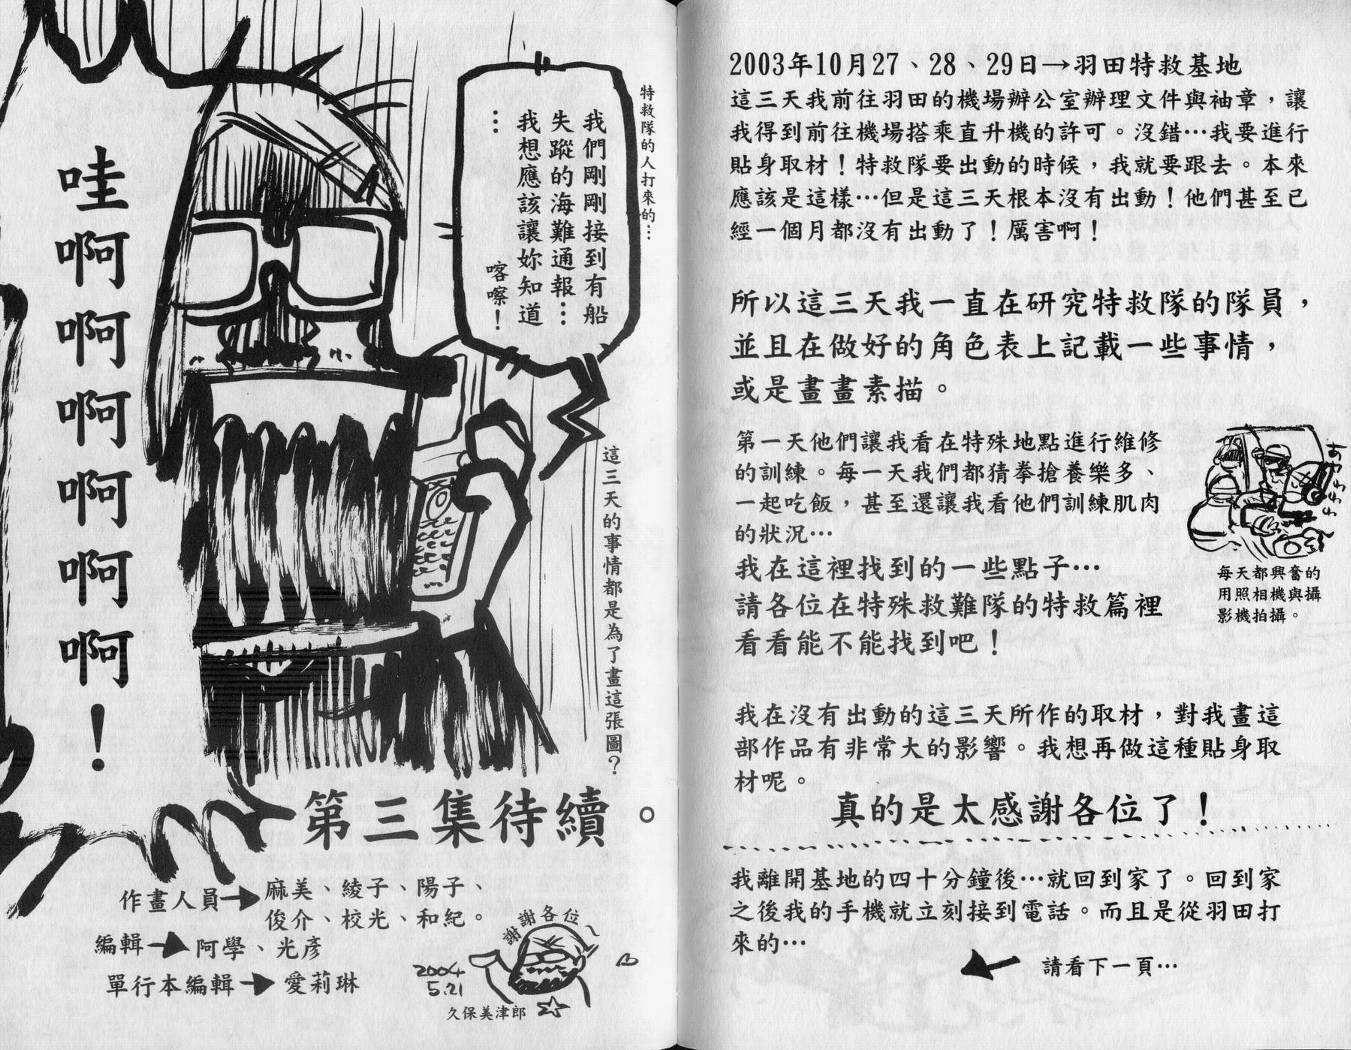 2003年10月27、28、29日→羽田特救基地
這三天我前往羽田的機場辦公室辦理文件與袖章，讓
我得到前往機場搭乘直升機的許可。沒錯…我要進行
貼身取材！特救隊要出動的時候，我就要跟去。本來
應該是這樣…但是這三天根本沒有出動！他們甚至已
經一個月都沒有出動了！厲害啊！
所以這三天我一直在研究特救隊的隊員，
並且在做好的角色表上記載一些事情，
或是畫畫素描。
第一天他們讓我看在特殊地點進行維修
的訓練。每一天我們都猜拳搶養樂多、
一起吃飯，甚至還讓我看他們訓練肌肉
的狀況…
我在這裡找到的一些點子…
請各位在特殊救難隊的特救篇裡
看看能不能找到吧！
每天都興奮的
用照相機與攝
影機拍攝。
我在沒有出動的這三天所作的取材，對我畫這
部作品有非常大的影響。我想再做這種貼身取
材呢。
真的是太感謝各位了！
我離開基地的四十分鐘後…就回到家了。回到家
之後我的手機就立刻接到電話。而且是從羽田打
來的…
請看下一頁…
特救隊的人打來的…
我們剛剛接到有船
失蹤的海難通報…
我想應該讓妳知道
…
喀嚓！
這三天的事情都是為了畫這張圖？
哇啊啊啊啊啊啊！
第三集待續。
作畫人員→麻美、綾子、陽子、
俊介、校光、和紀。
編輯→阿學、光彥
單行本編輯→愛莉琳
謝謝各位～
2004
5.21
久保美津郎